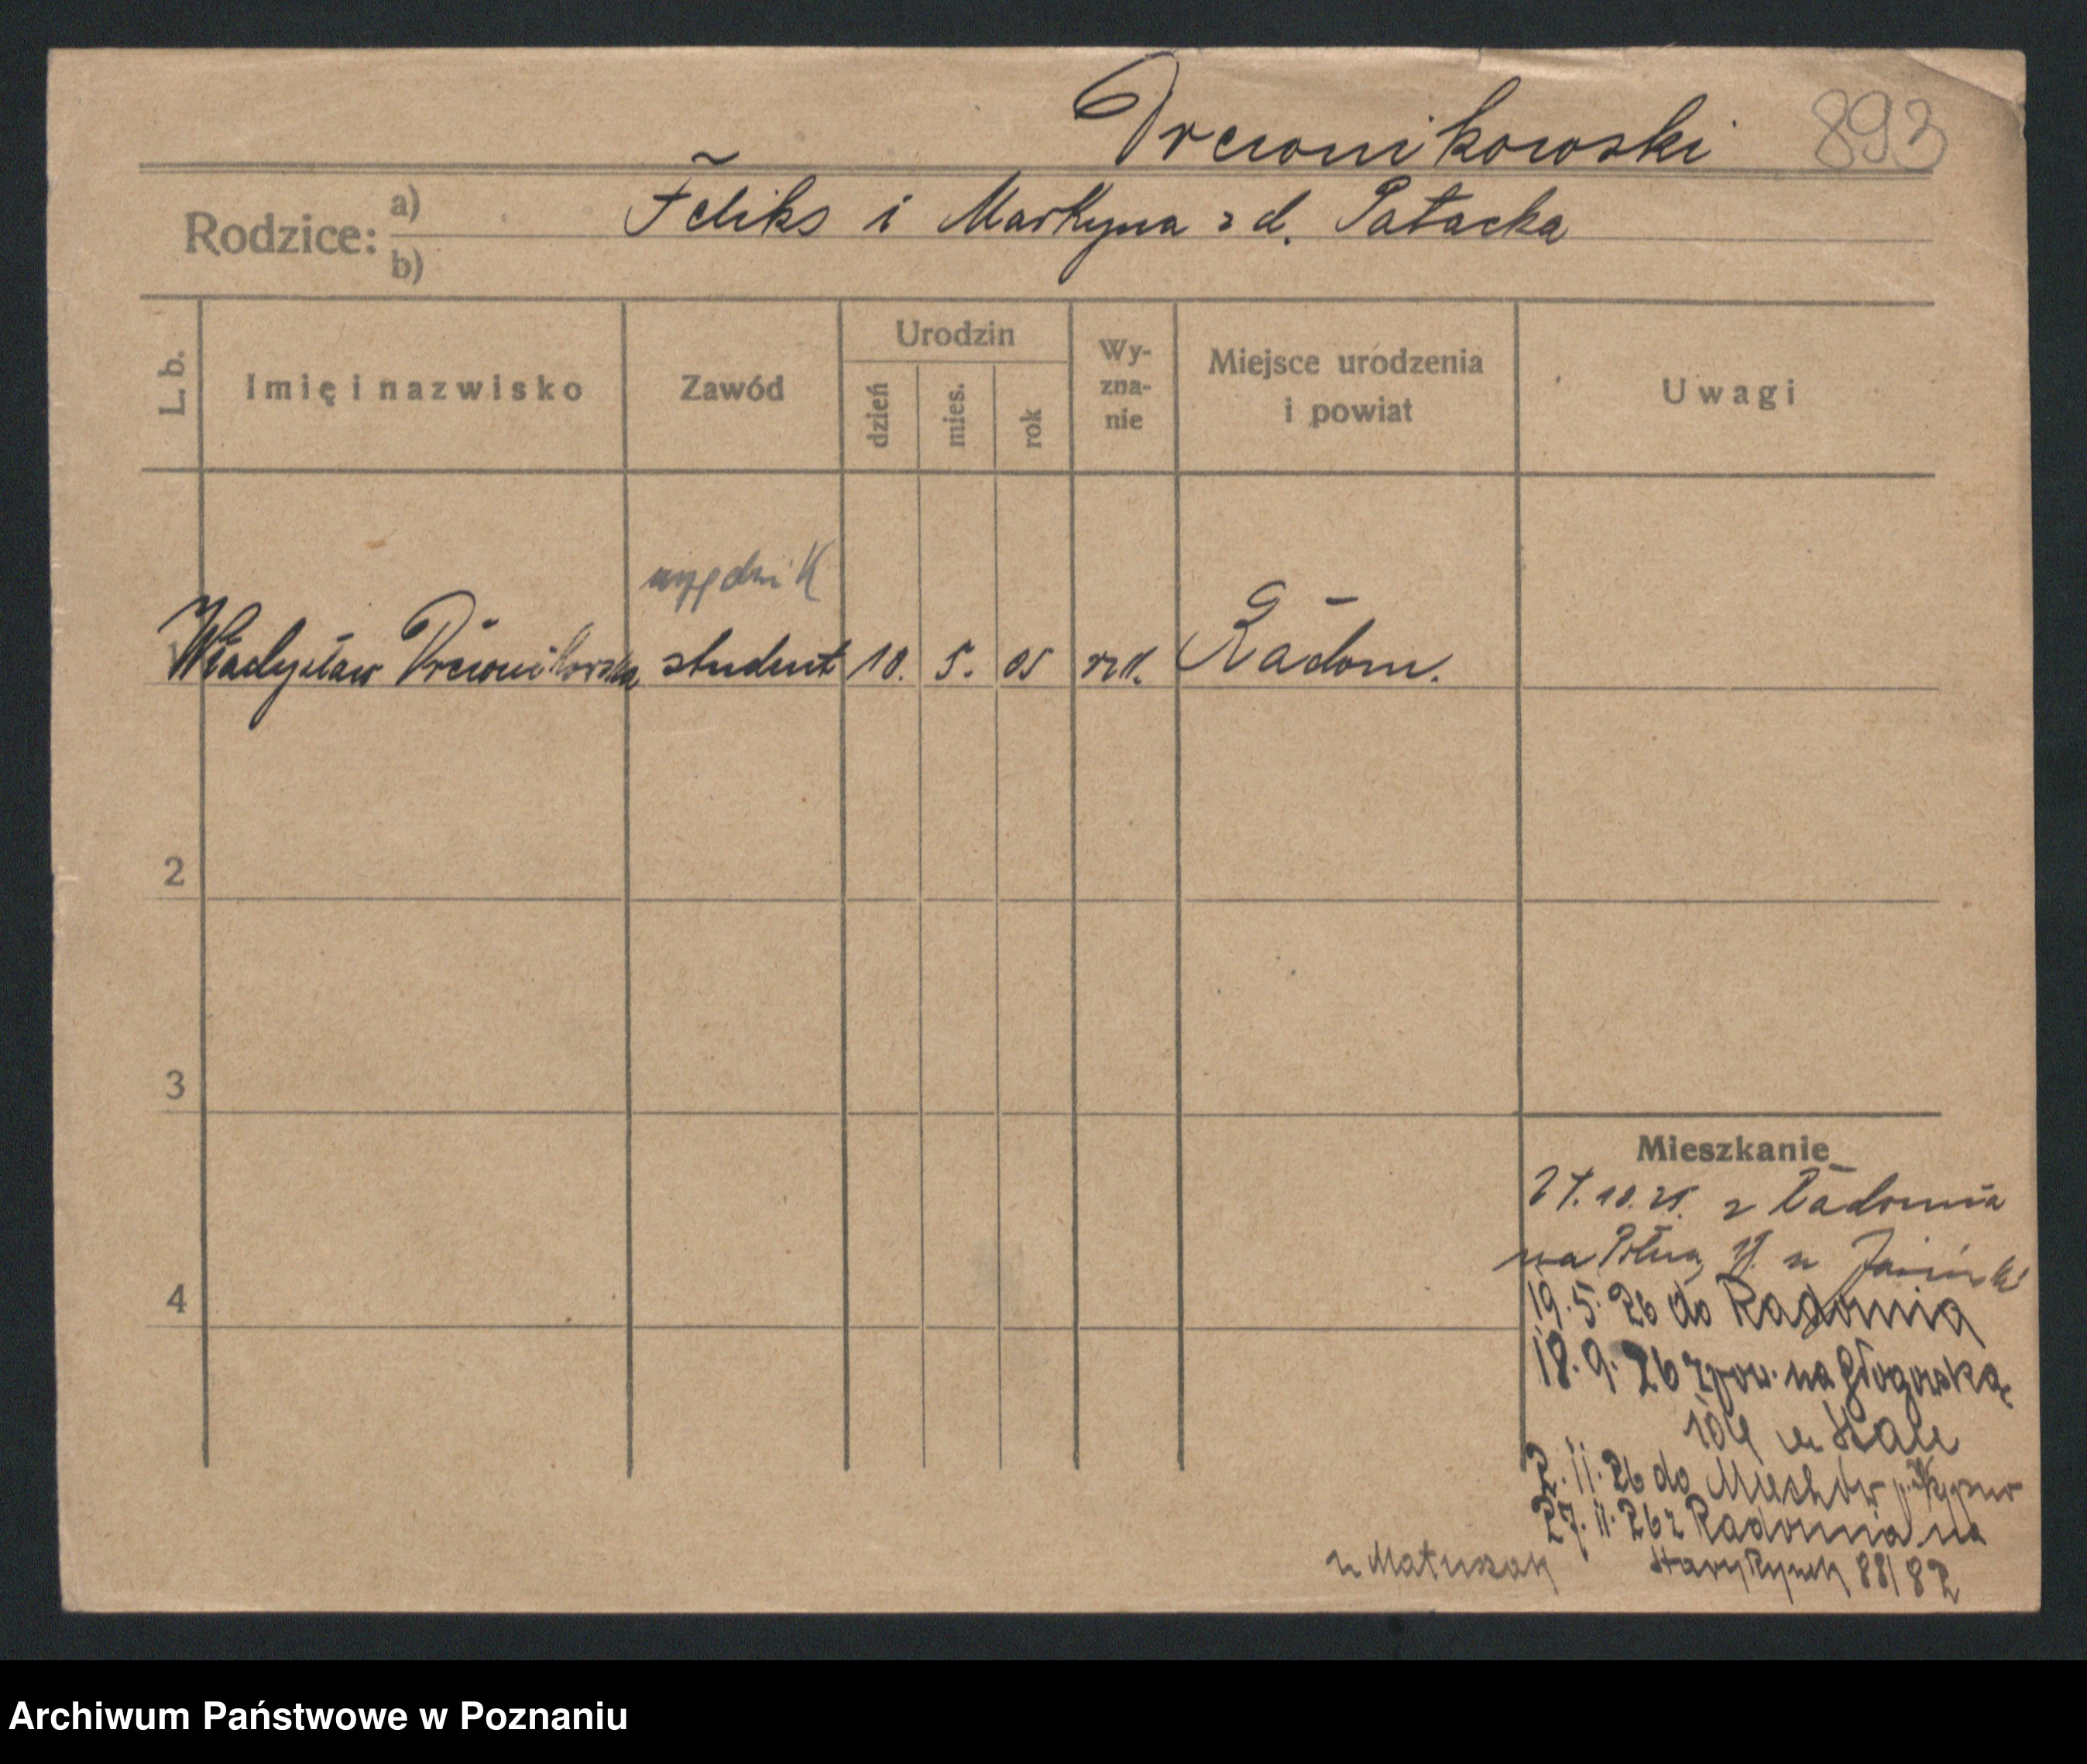 Drewnikowski 893
Rodzice: a) Feliks i Martyna z d. Patacka
b)
L. b. Imię i nazwisko Zawód Urodzin dzień mies. rok Wyzna-nie Miejsce urodzenia i powiat Uwagi
urzędnik
1 Władysław Drewnikowski student 10. 5. 05 rzk. Radom.
2
3
4
Mieszkanie
10. 25. z Radomia
na u Jasiński
19. 5. 26 do Radomia
18. 9. 26 zpow. na Głogowską
104 u
2. 11. 26 do Miechów
27. 11. 26 z Radomia na
u Matuszak Stary Rynek 88/82
Archiwum Państwowe w Poznaniu